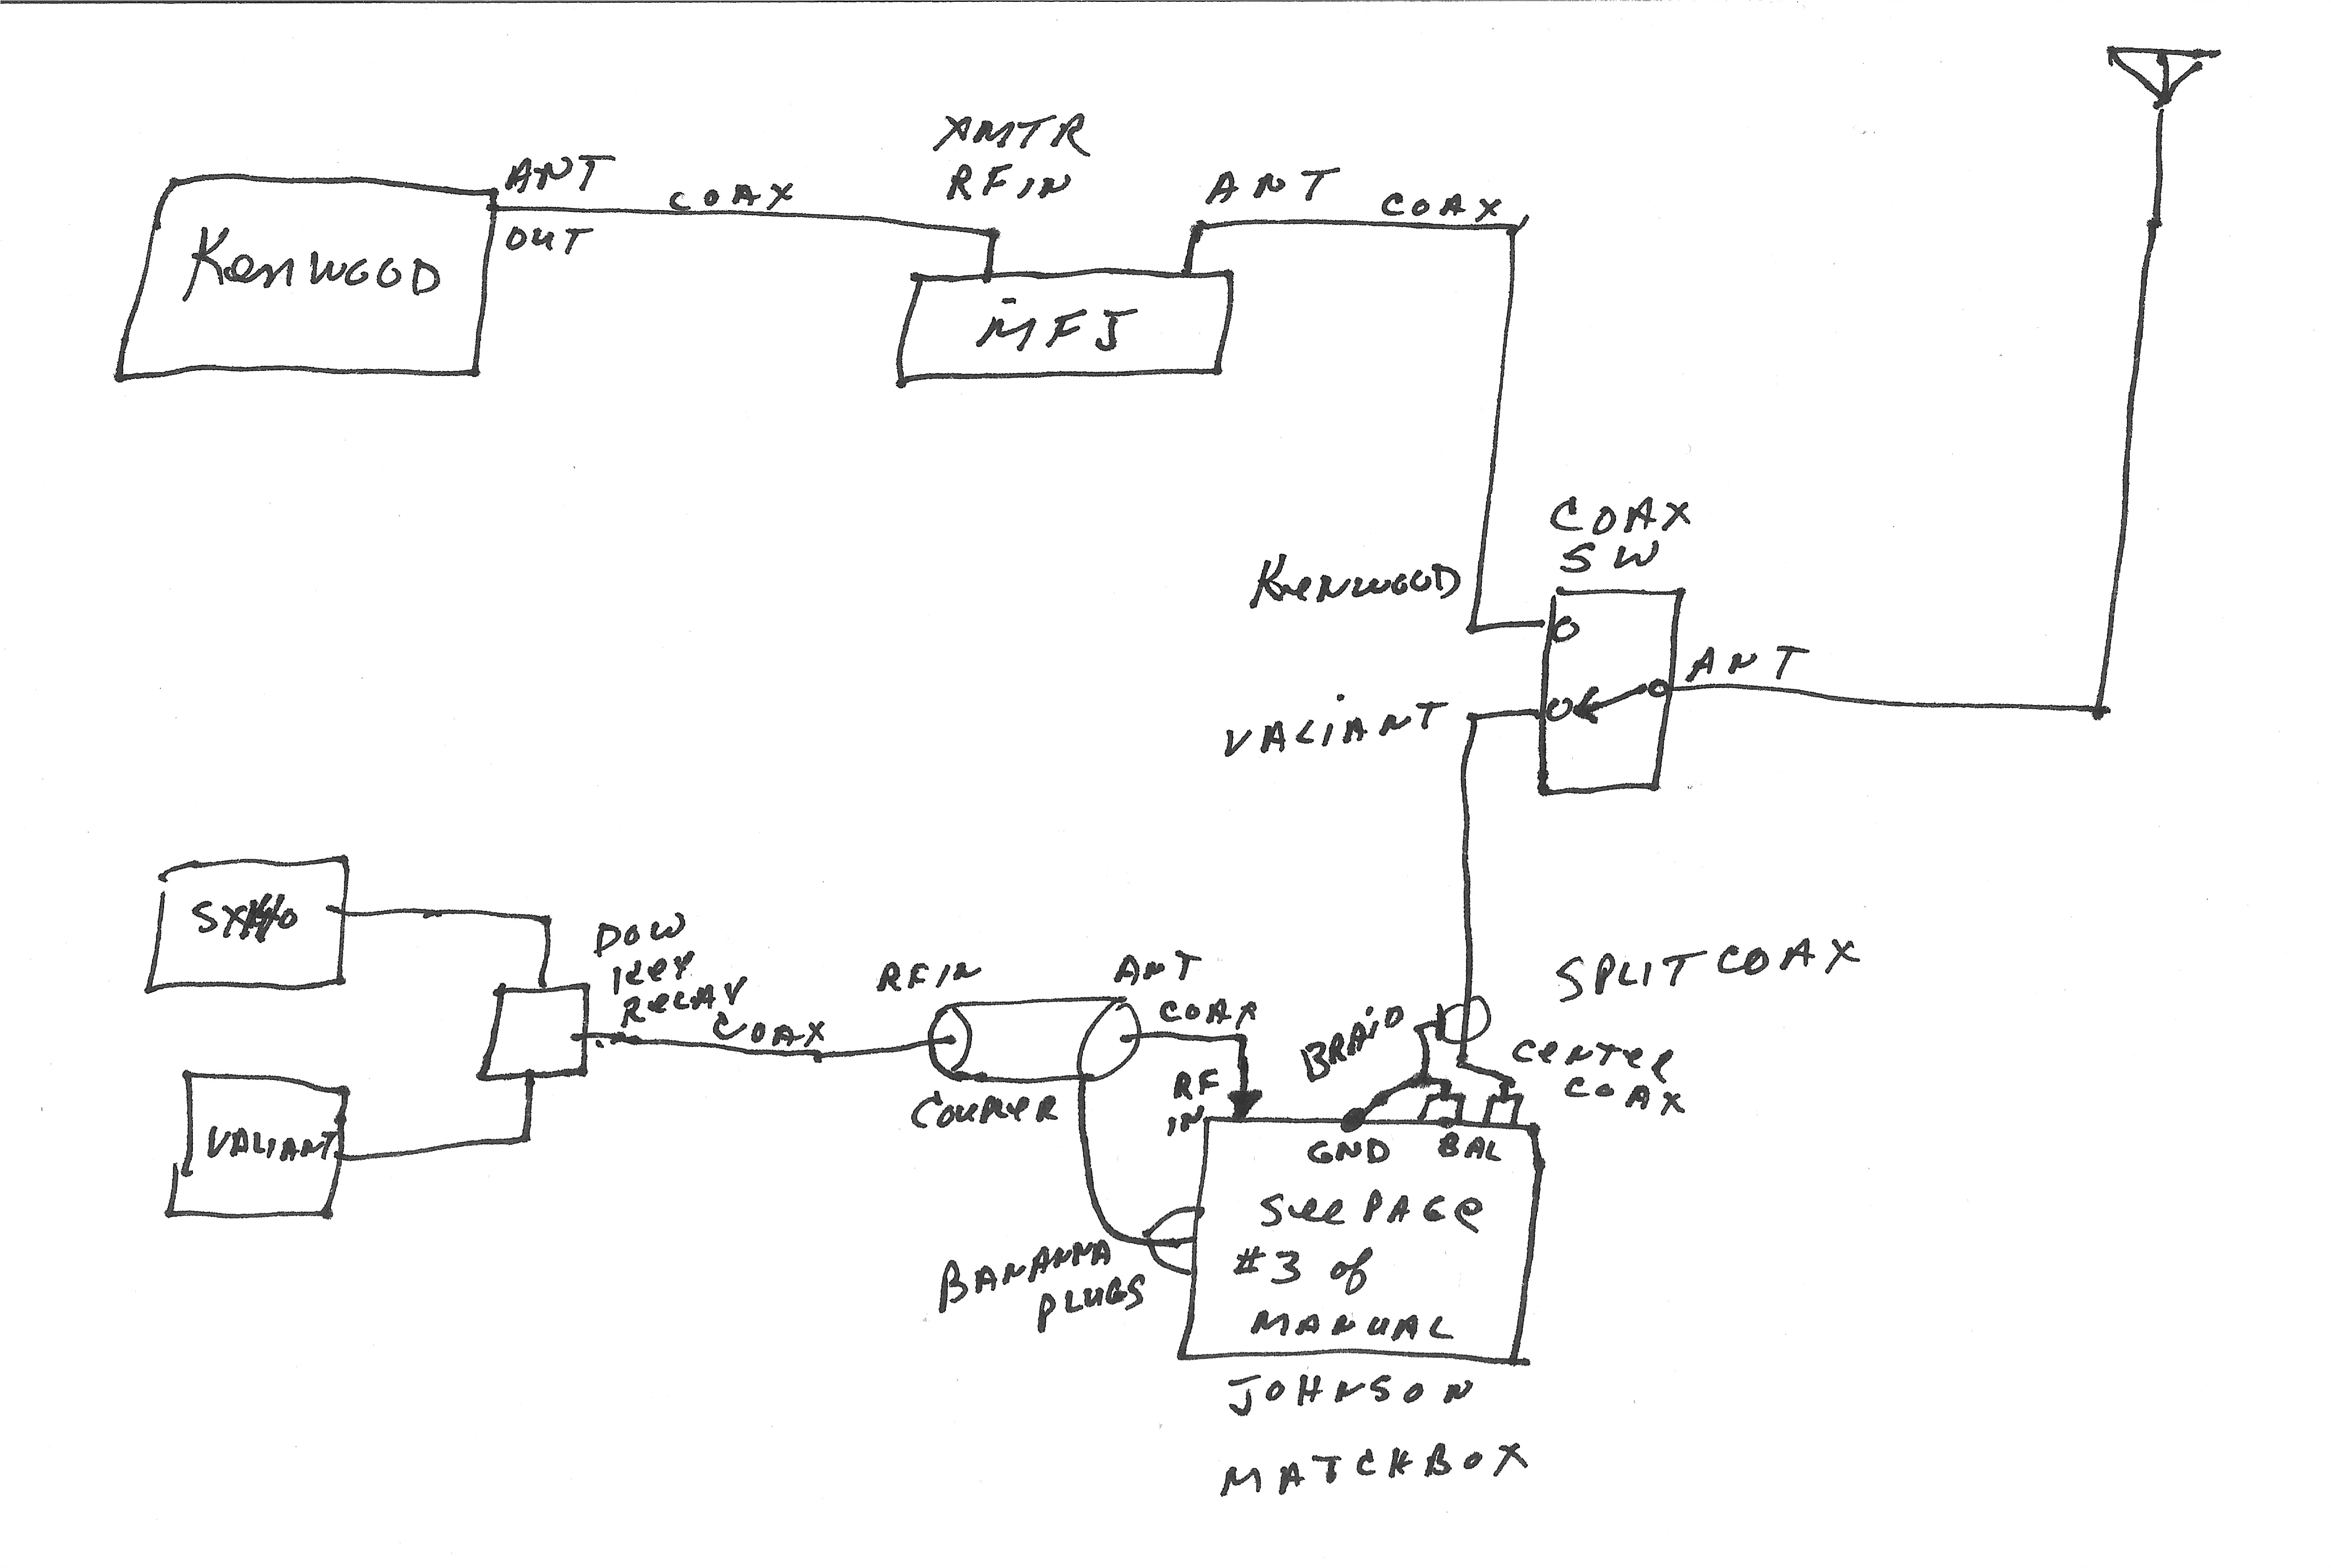 XMTR
RF IN
ANT
COAX
OUT
ANT
COAX
Kenwood
MFJ
COAX
SW
Kenwood
ANT
VALIANT
DOW
Key
Relay
COAX
RF IN
ANT
COAX
SPLIT COAX
BRAID
CENTER
COAX
RF
IN
GND
BAL
VALIANT
BANANNA
PLUGS
See PAGe
#3 of
MANUAL
JOHNSON
MATCHBOX